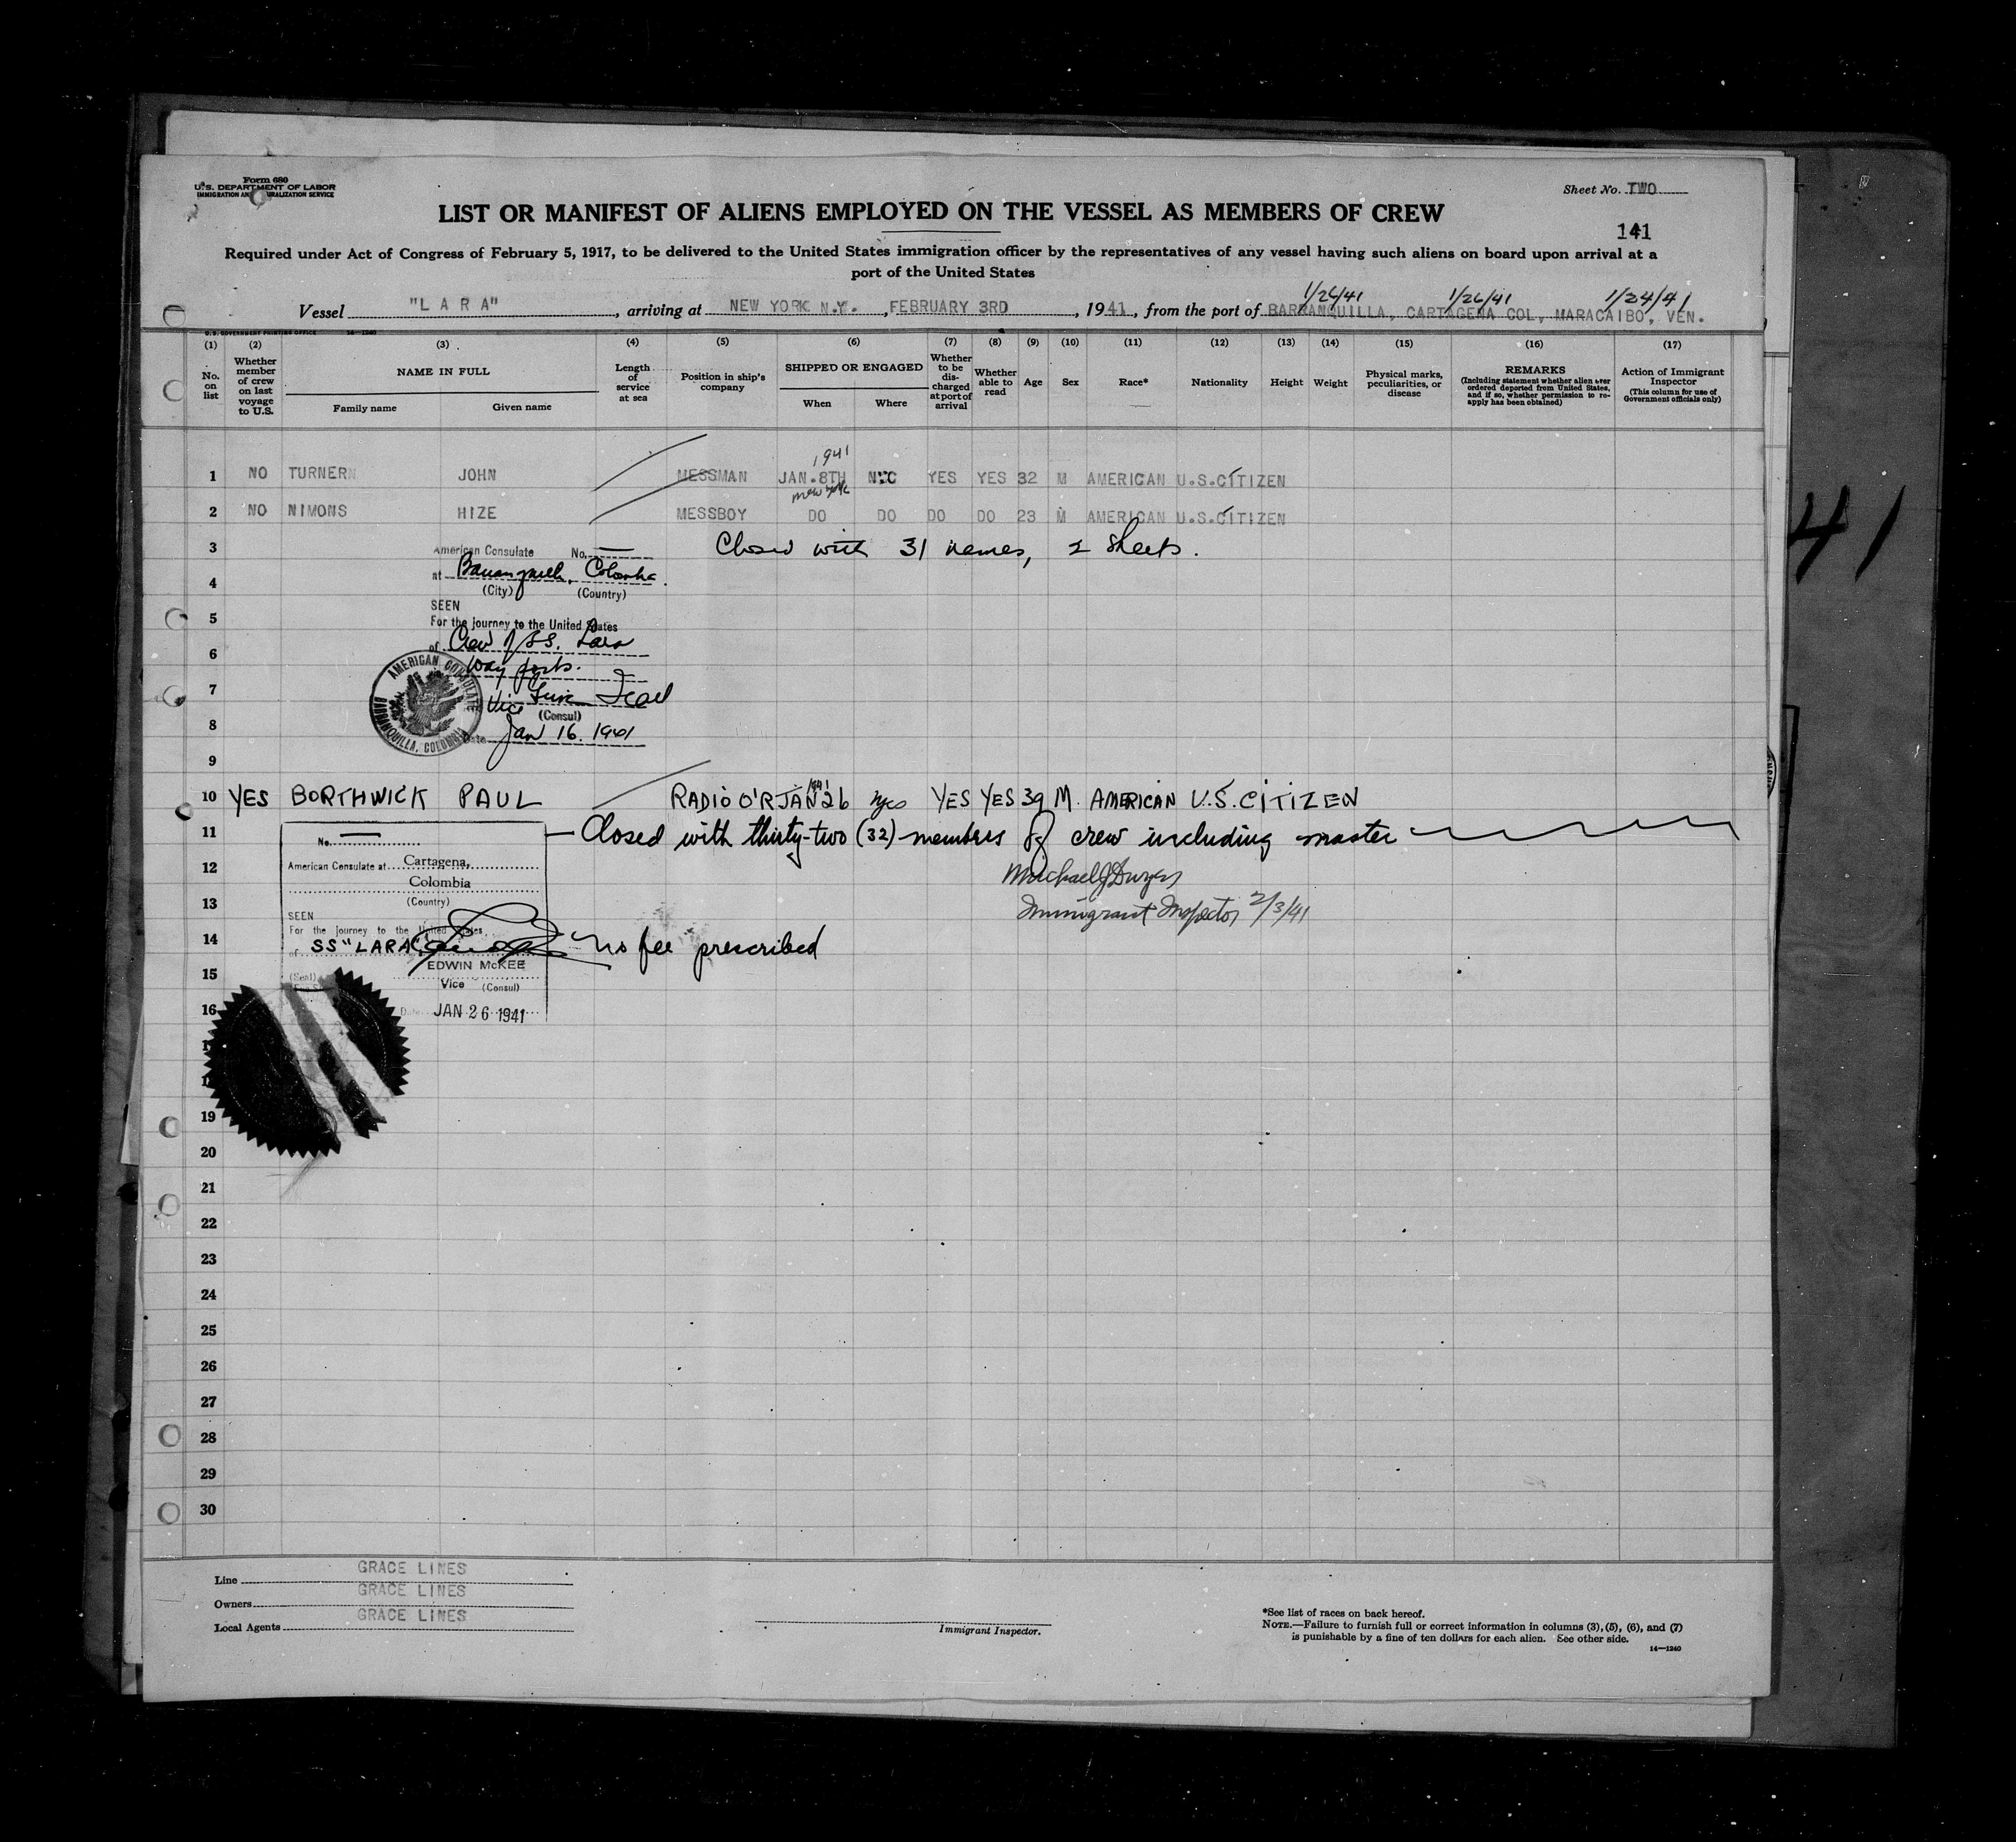 Form 680
U.S. DEPARTMENT OF LABOR
IMMIGRATION AND NATURALIZATION SERVICE
Sheet No. TWO
LIST OR MANIFEST OF ALIENS EMPLOYED ON THE VESSEL AS MEMBERS OF CREW
141
Required under Act of Congress of February 5, 1917, to be delivered to the United States immigration officer by the representatives of any vessel having such aliens on board upon arrival at a
port of the United States
1/26/41 1/26/41 1/24/41
Vessel "LARA", arriving at NEW YORK N.Y., FEBRUARY 3RD, 1941, from the port of BARRANQUILLA, CARTAGENA COL, MARACAIBO, VEN.
U.S. GOVERNMENT PRINTING OFFICE 14-1240
(1) (2) (3) (4) (5) (6) (7) (8) (9) (10) (11) (12) (13) (14) (15) (16) (17)
No. on list
Whether member of crew on last voyage to U.S.
NAME IN FULL
Family name Given name
Length of service at sea
Position in ship's company
SHIPPED OR ENGAGED
When Where
Whether to be discharged at port of arrival
Whether able to read
Age
Sex
Race*
Nationality
Height
Weight
Physical marks, peculiarities, or disease
REMARKS
(Including statement whether alien ever ordered deported from United States, and if so, whether permission to re-apply has been obtained)
Action of Immigrant Inspector
(This column for use of Government officials only)
1941
1 NO TURNER JOHN MESSMAN JAN.8TH NYC YES YES 32 M AMERICAN U.S.CITIZEN
New York
2 NO NIMONS HIZE MESSBOY DO DO DO DO 23 M AMERICAN U.S.CITIZEN
3 Closed with 31 names, 2 sheets.
American Consulate No.
4 at Barranquilla, Colombia
(City) (Country)
SEEN
5 For the journey to the United States
6 of Crew of SS. Lara
way ports.
AMERICAN CONSULATE
BARRANQUILLA, COLOMBIA
7 Vice
(Consul)
8 Date Jan 16. 1941
9
1941
10 YES BORTHWICK PAUL RADIO O'R JAN 26 nyc YES YES 39 M. AMERICAN U.S. CITIZEN
11 Closed with thirty-two (32) members of crew including master
No.
12 American Consulate at Cartagena,
Colombia
(Country)
Michael J Dwyer
13 Immigrant Inspector 2/3/41
SEEN
For the journey to the United States
14 of SS "LARA" No fee prescribed
EDWIN McKEE
15 (Seal) Vice (Consul)
16 Date JAN 26 1941
19
20
21
22
23
24
25
26
27
28
29
30
Line GRACE LINES
Owners GRACE LINES
Local Agents GRACE LINES
Immigrant Inspector.
*See list of races on back hereof.
NOTE.—Failure to furnish full or correct information in columns (3), (5), (6), and (7)
is punishable by a fine of ten dollars for each alien. See other side.
14—1240
41